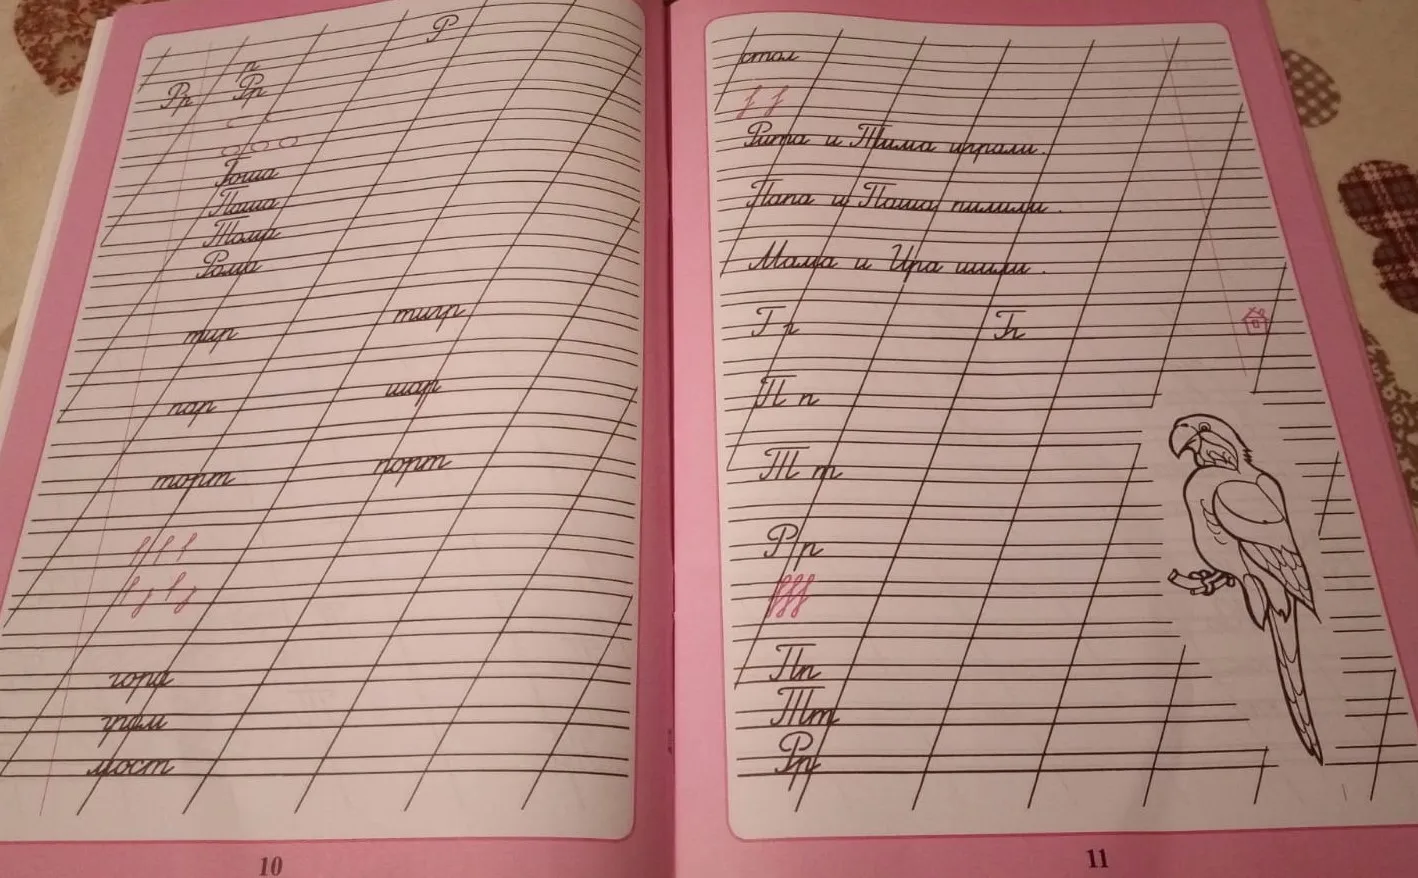 Р
р
Рр Рр
Гоша
Паша
Тома
Рома
тир тигр
пар шар
торт порт
гора
гром
мост
10
стол
Рита и Тима играли.
Папа и Паша пилили.
Мама и Ира шили.
Г г Гг
П п
Т т
Р р
Пп
Тт
Рр
11